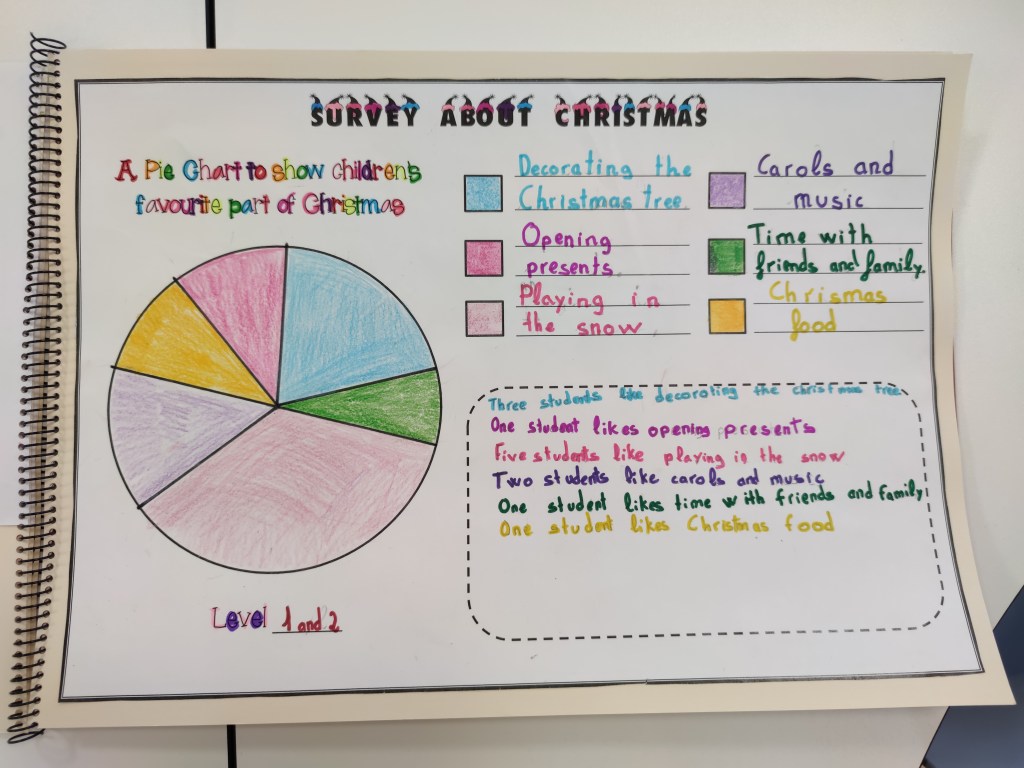 SURVEY ABOUT CHRISTMAS
A Pie Chart to show children's
favourite part of Christmas
Decorating the
Christmas tree
Opening
presents
Playing in
the snow
Carols and
music
Time with
friends and family
Chrismas
food
Three students like decorating the christmas tree
One student likes opening presents
Five students like playing in the snow
Two students like carols and music
One student likes time with friends and family
One student likes Christmas food
Level 1 and 2